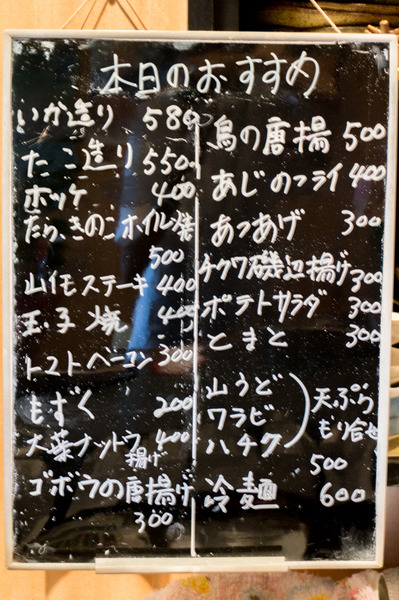 本日のおすすめ
いか造り 580
たこ造り 550
ホッケ 400
たらきのこホイル焼
500
山イモステーキ 400
玉子焼 400
トマトベーコン 300
もずく 200
大葉ナットウ揚げ 400
ゴボウの唐揚げ
300
鳥の唐揚 500
あじのフライ 400
あつあげ 300
チクワ磯辺揚げ 300
ポテトサラダ 300
とまと 300
山うど
ワラビ
ハチク
天ぷら
もり合せ
500
冷麺 600